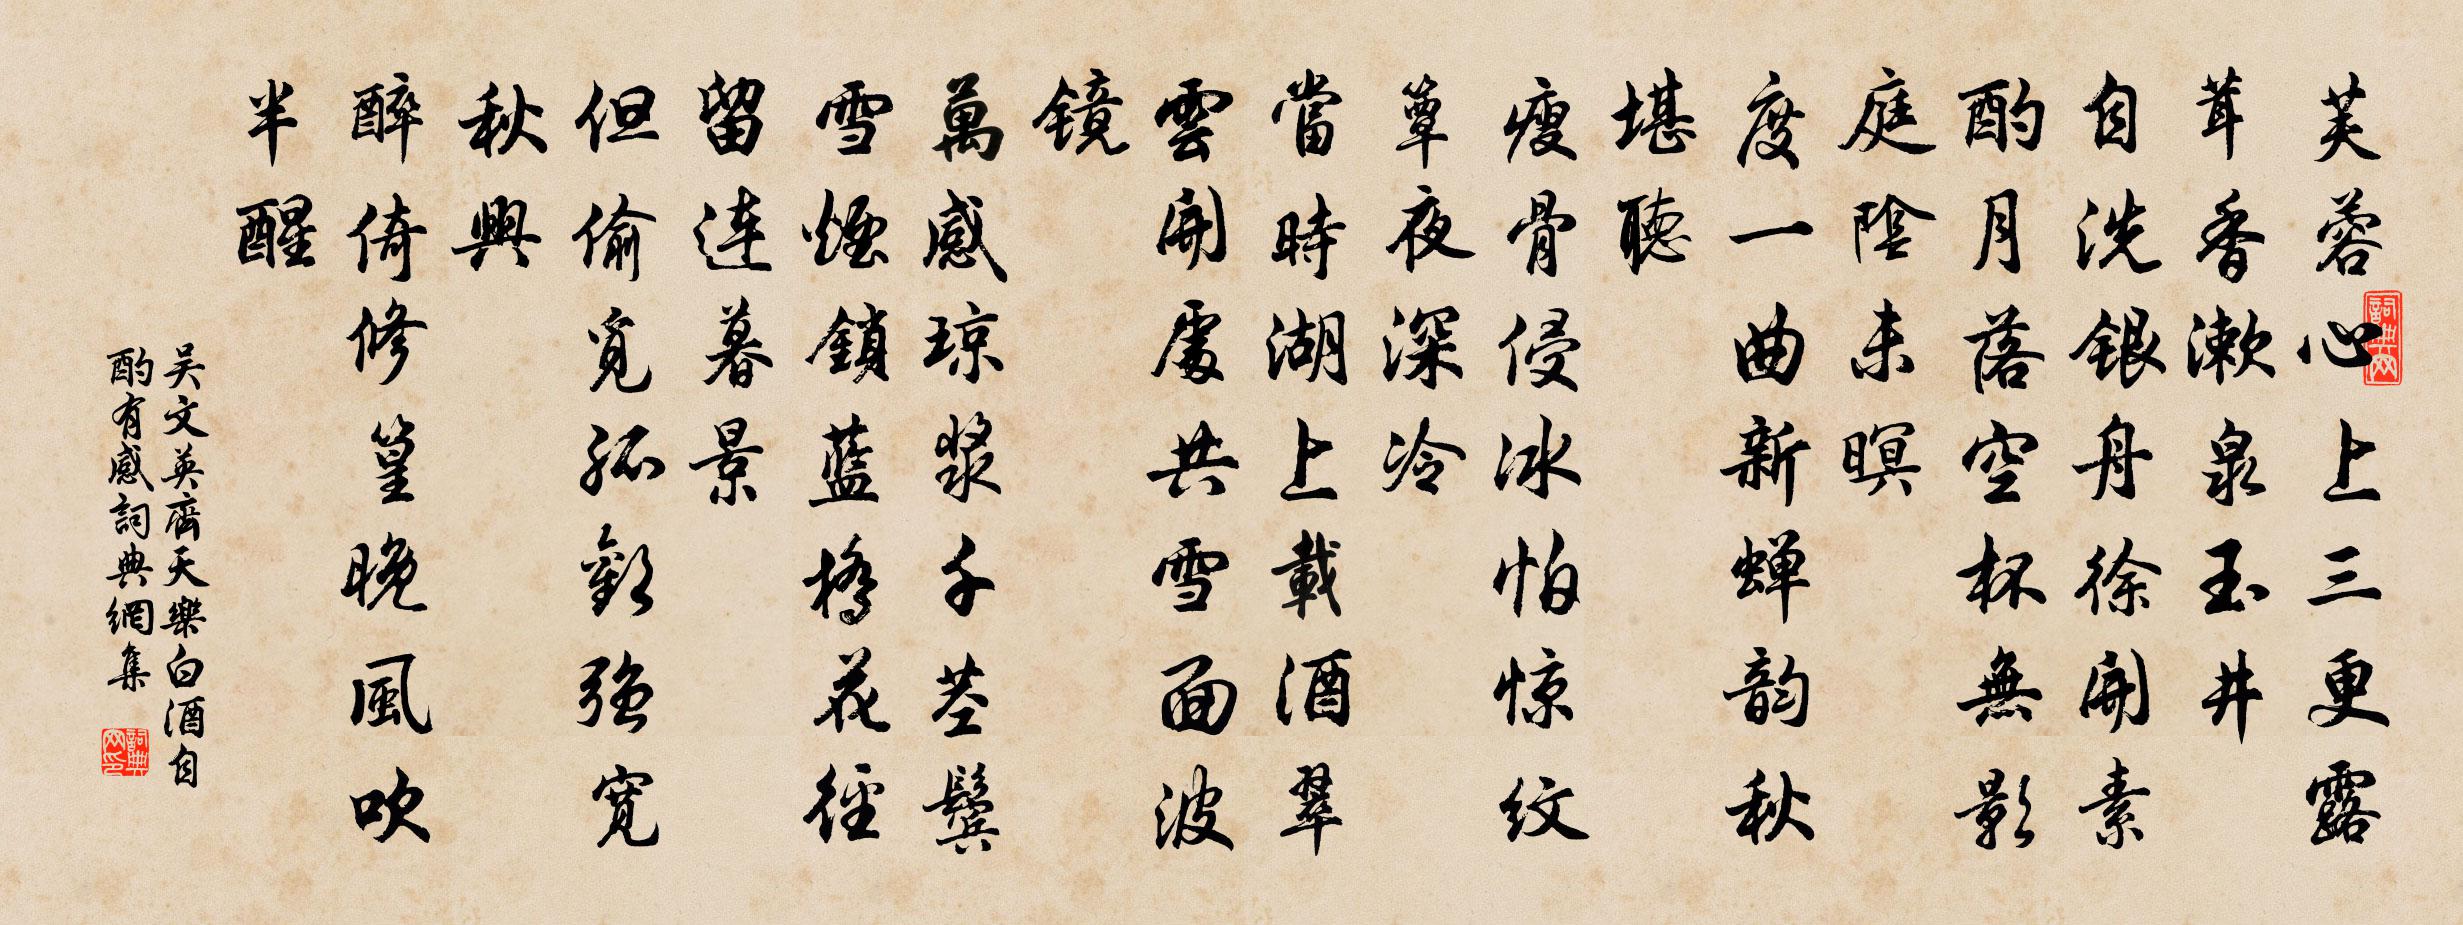 芙蓉心上三更露
茸香漱泉玉井
自洗銀舟徐開素
酌月落空杯無影
庭陰未暝
度一曲新蝉韵秋
堪聽
瘦骨侵冰怕惊纹
簟夜深冷
當時湖上載酒翠
雲開處共雪面波
镜
萬感琼浆千茎鬓
雪煙鎖藍橋花徑
留連暮景
但偷觅孤歡強宽
秋興
醉倚修篁晚風吹
半醒
吴文英齊天樂白酒自
酌有感詞典網集
詞典网
詞典网印